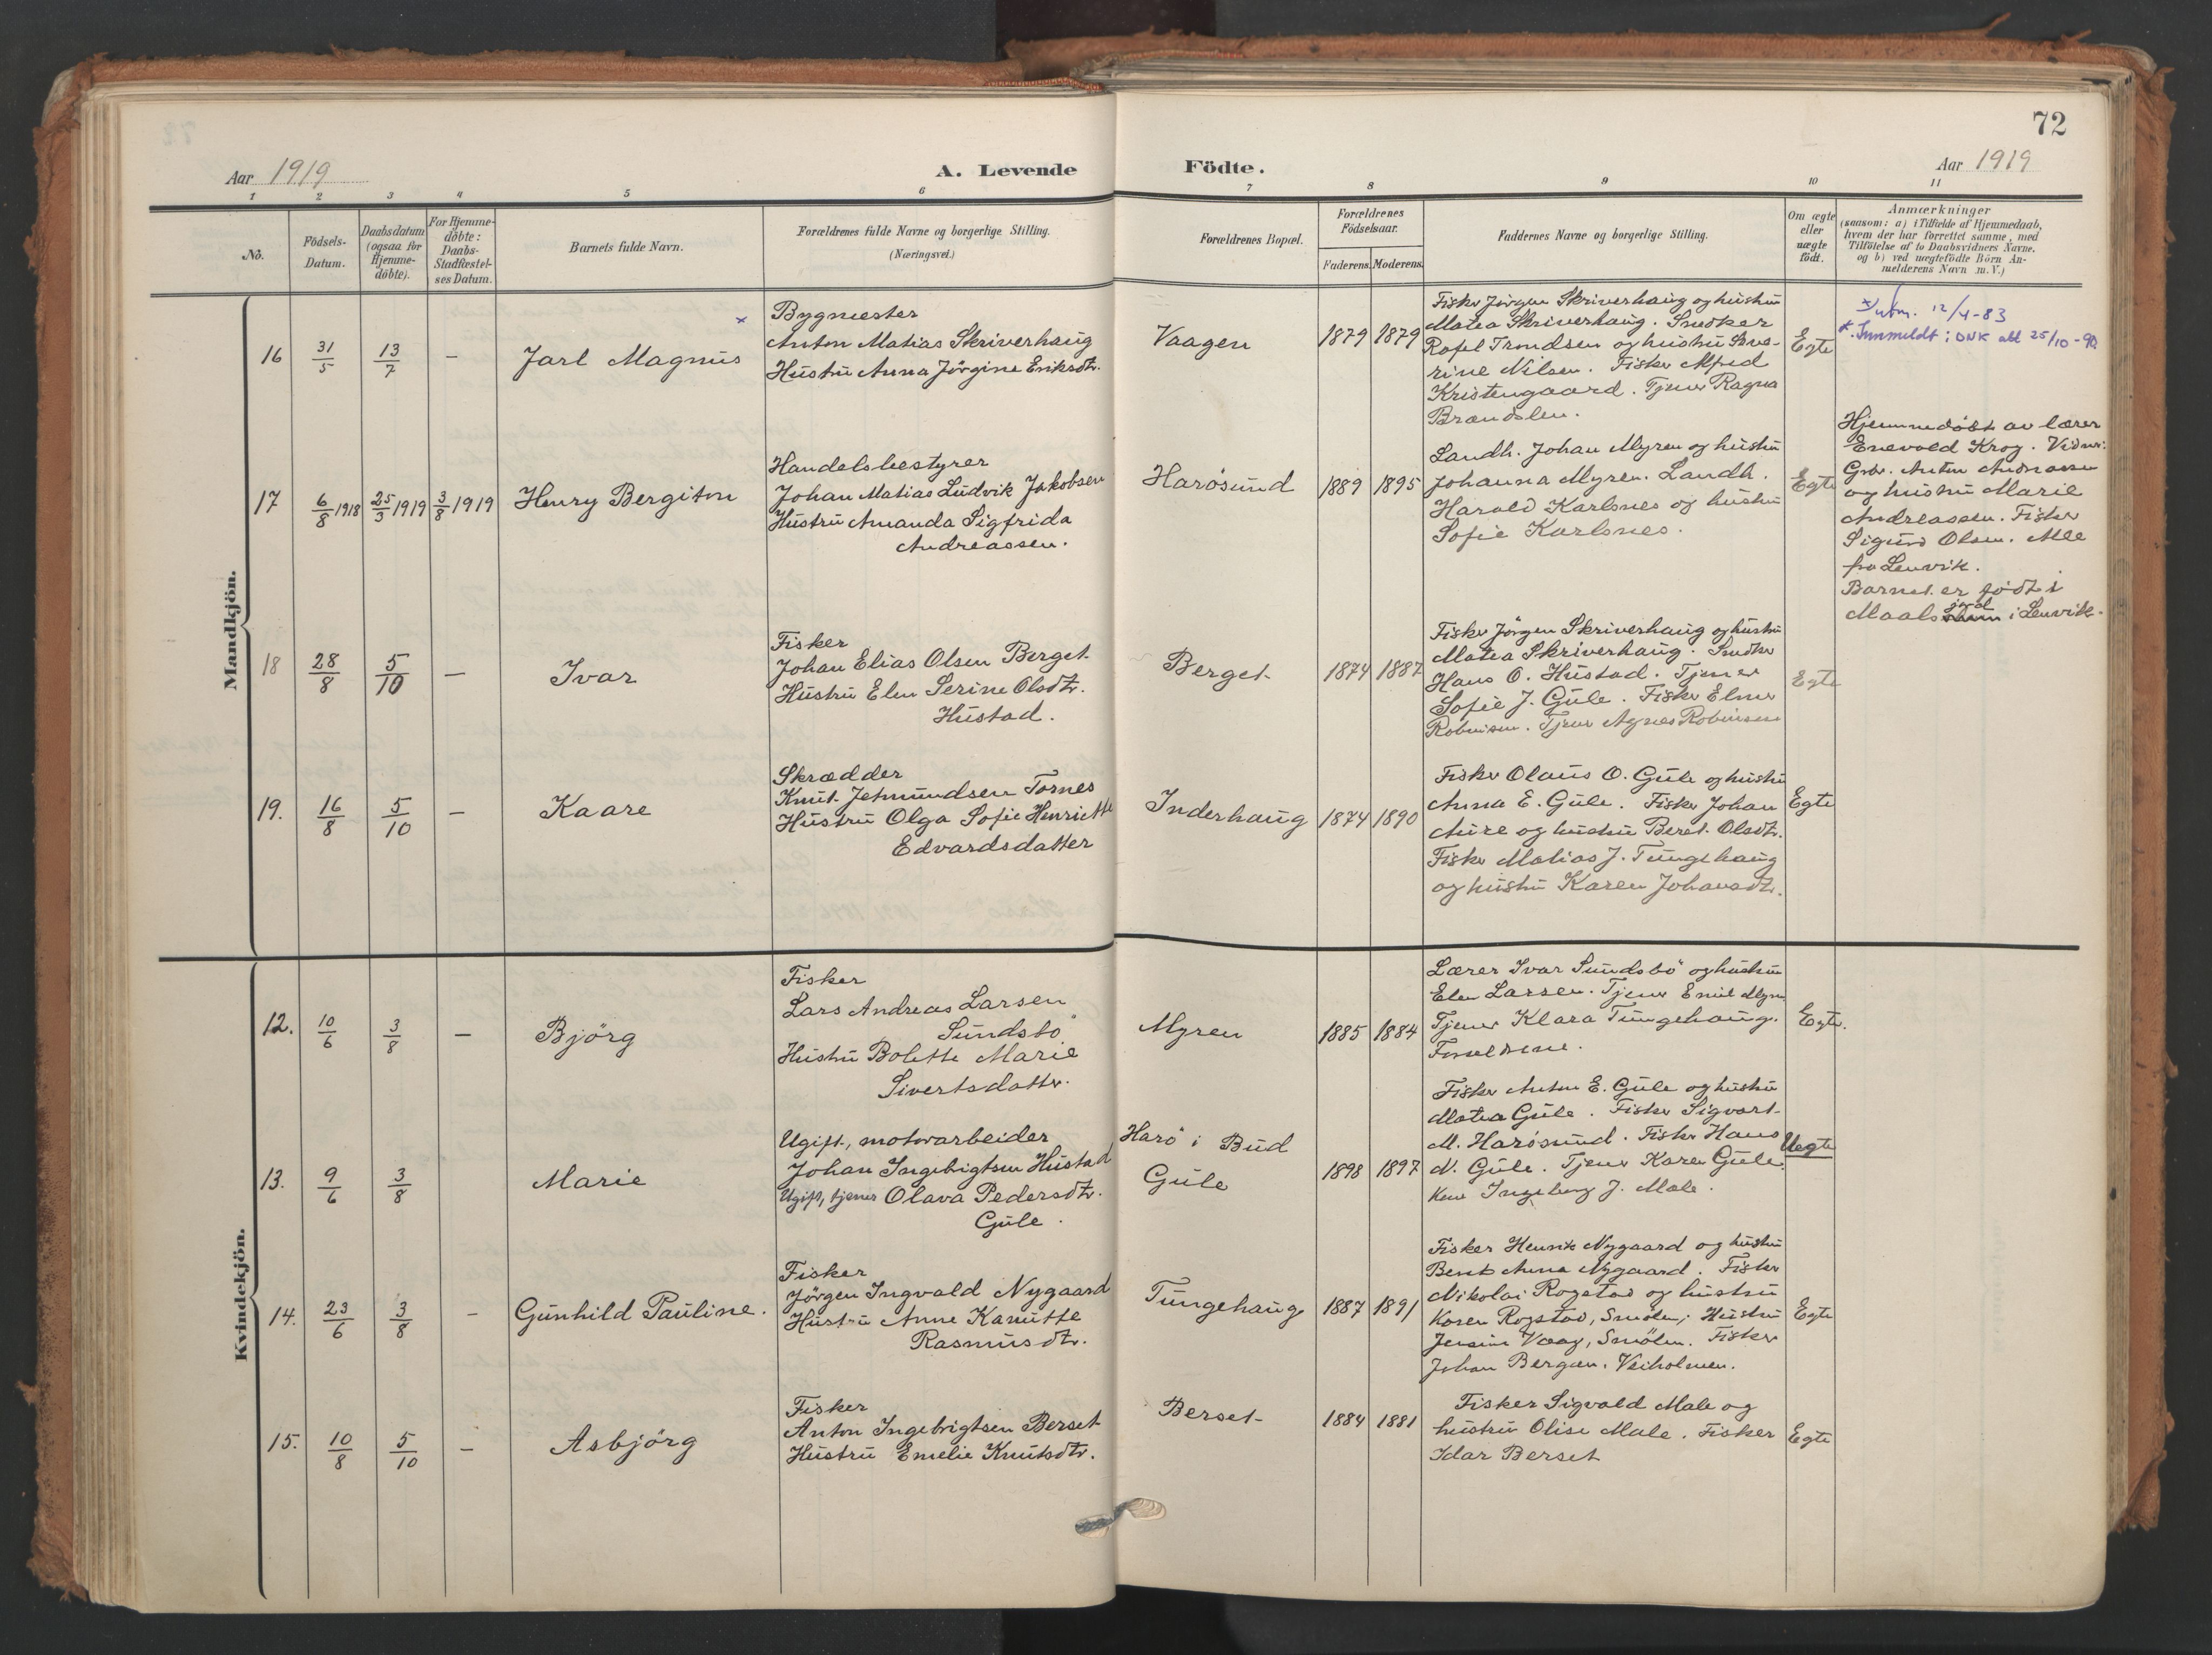 72
Aar 1919
A. Levende
Födte.
Aar 1919
1 2 3 4 5 6 7 8 9 10 11
No.
Födsels-
Datum.
Daabsdatum
(ogsaa for
Hjemme-
döbte).
For Hjemme-
döbte:
Daabs-
Stadfæstel-
ses Datum.
Barnets fulde Navn.
Forældrenes fulde Navne og borgerlige Stilling.
(Næringsvei.)
Forældrenes Bopæl.
Forældrenes
Födselsaar.
Faderens. Moderens.
Faddernes Navne og borgerlige Stilling.
Om ægte
eller
uægte
födt.
Anmærkninger
(saasom: a) i Tilfælde af Hjemmedaab,
hvem der har forrettet samme, med
Tilföielse af to Daabsvidners Navne.
og b) ved uægtefödte Börn An-
melderens Navn m. V.)
Mandkjön.
16
31/5
13/7
—
Jarl Magnus
x
Bygmester
Anton Matias Skriverhaug
Hustru Anna Jörgine Eriksdtr.
Vaagen
1879 1879
Fisker Jörgen Skriverhaug og hustru
Matea Skriverhaug. Snedker
Rafel Trondsen og hustru Seve-
rine Nilsen. Fisker Alfred
Kristengaard. Tjener Ragna
Egte
x Utm. 12/4-83
*. Innmeldt i DNK att 25/10-90
17
6/8 1918
25/3 1919
3/8 1919
Henry Bergiton
Handelsbestyrer
Johan Matias Ludvik Jakobsen
Hustru Amanda Sigfrida
Andreassen.
Harøsund
1889 1895
Landh. Johan Myren og hustru
Johanna Myren. Landh.
Harald Karlsnes og hustru
Sofie Karlsnes.
Egte
Hjemmedöbt av lærer
Enevold Krog. Vidner:
Grbr. Anton Andreassen
og hustru Marie
Andreassen. Fisker
Sigurd Olsen. Alle
fra Lenvik.
Barnet er födt i
Maalsjord i Lenvik.
18
28/8
5/10
—
Ivar
Fisker
Johan Elias Olsen Berget
Hustru Elen Serine Olsdtr.
Hustad.
Berget
1874 1887
Fisker Jörgen Skriverhaug og hustru
Matea Skriverhaug. Snedker
Hans O. Hustad. Tjener
Sofie J. Gule. Fisker Elmer
Robinsen. Tjener Agnes Robinsen
Egte
19.
16/8
5/10
—
Kaare
Skrædder
Knut Jetmundsen Tornes
Hustru Olga Sofie Henriette
Edvardsdatter
Inderhaug
1874 1890
Fisker Olaus O. Gule og hustru
Anna E. Gule. Fisker Johan
Aure og hustru Beret Olsdtr.
Fisker Matias J. Tungehaug
og hustru Karen Johansdtr.
Egte
Kvindekjön.
12.
10/6
3/8
—
Björg
Fisker
Lars Andreas Larsen
Sundsbö
Hustru Bolette Marie
Sivertsdatter.
Myren
1885 1884
Lærer Ivar Sundsbö og hustru
Elen Larsen. Tjener Emil Myren
Tjener Klara Tungehaug.
Forældrene.
Egte.
13.
9/6
3/8
Marie
Ugift, motorarbeider
Johan Ingebrigtsen Hustad
Ugift, tjener Olava Pedersdtr.
Gule.
Harö i Bud
Gule
1898 1897
Fisker Anton E. Gule og hustru
Matea Gule. Fisker Sigvart
M. Harösund. Fisker Hans
N. Gule. Tjener Karen Gule.
Ingeborg J. Male.
Uegte
14.
23/6
3/8
–
Gunhild Pauline.
Fisker
Jörgen Ingvald Nygaard
Hustru Anne Kanutte
Rasmusdtr.
Tungehaug
1887 1891
Fisker Henrik Nygaard og hustru
Berit Anna Nygaard. Fisker
Nikolai Rogstad og hustru
Karen Rogstad, Smölen; Hustru
Jensine Vaag, Smölen. Fisker
Johan Bergem. Veiholmen.
Egte
15.
10/8
5/10
–
Asbjörg
Fisker
Anton Ingebrigtsen Berset
Hustru Emelie Knutsdtr.
Berset
1884 1881
Fisker Sigvald Male og
hustru Olise Male. Fisker
Idar Berset
Egte